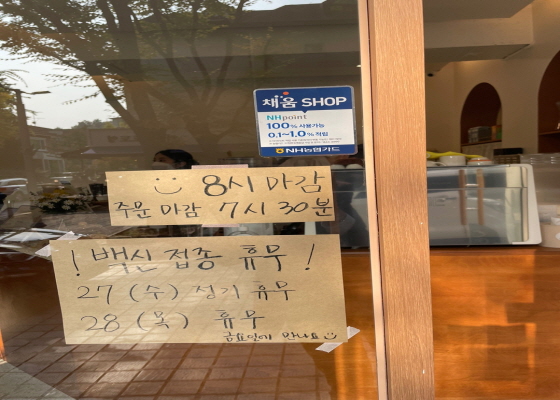 채움 SHOP
NHpoint
100% 사용가능
0.1~1.0% 적립
NH농협카드
8시 마감
주문 마감 7시 30분
! 백신 접종 휴무 !
27 (수) 정기 휴무
28 (목) 휴무
금요일에 만나요